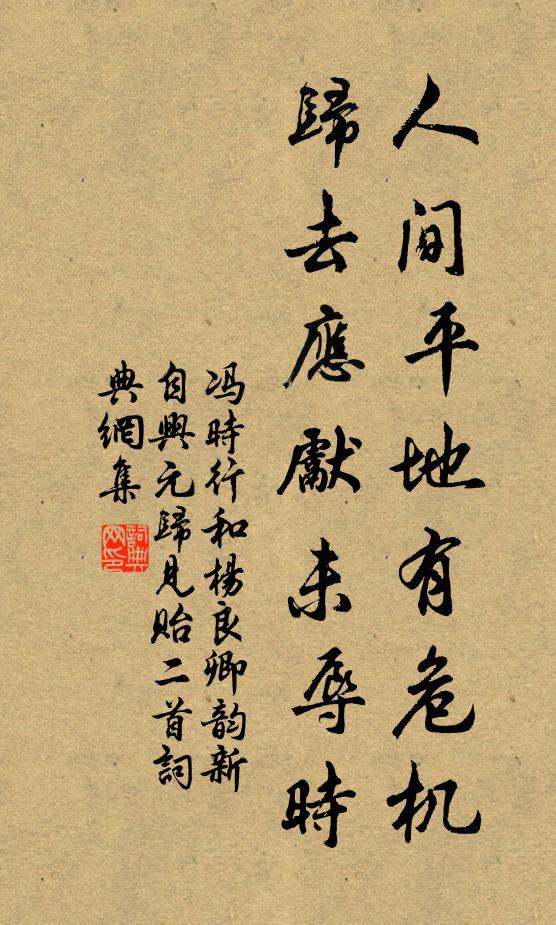 人间平地有危机
歸去應獻未辱時
冯時行和楊良卿韵新
自興元歸見貽二首詞
典網集
詞典网印